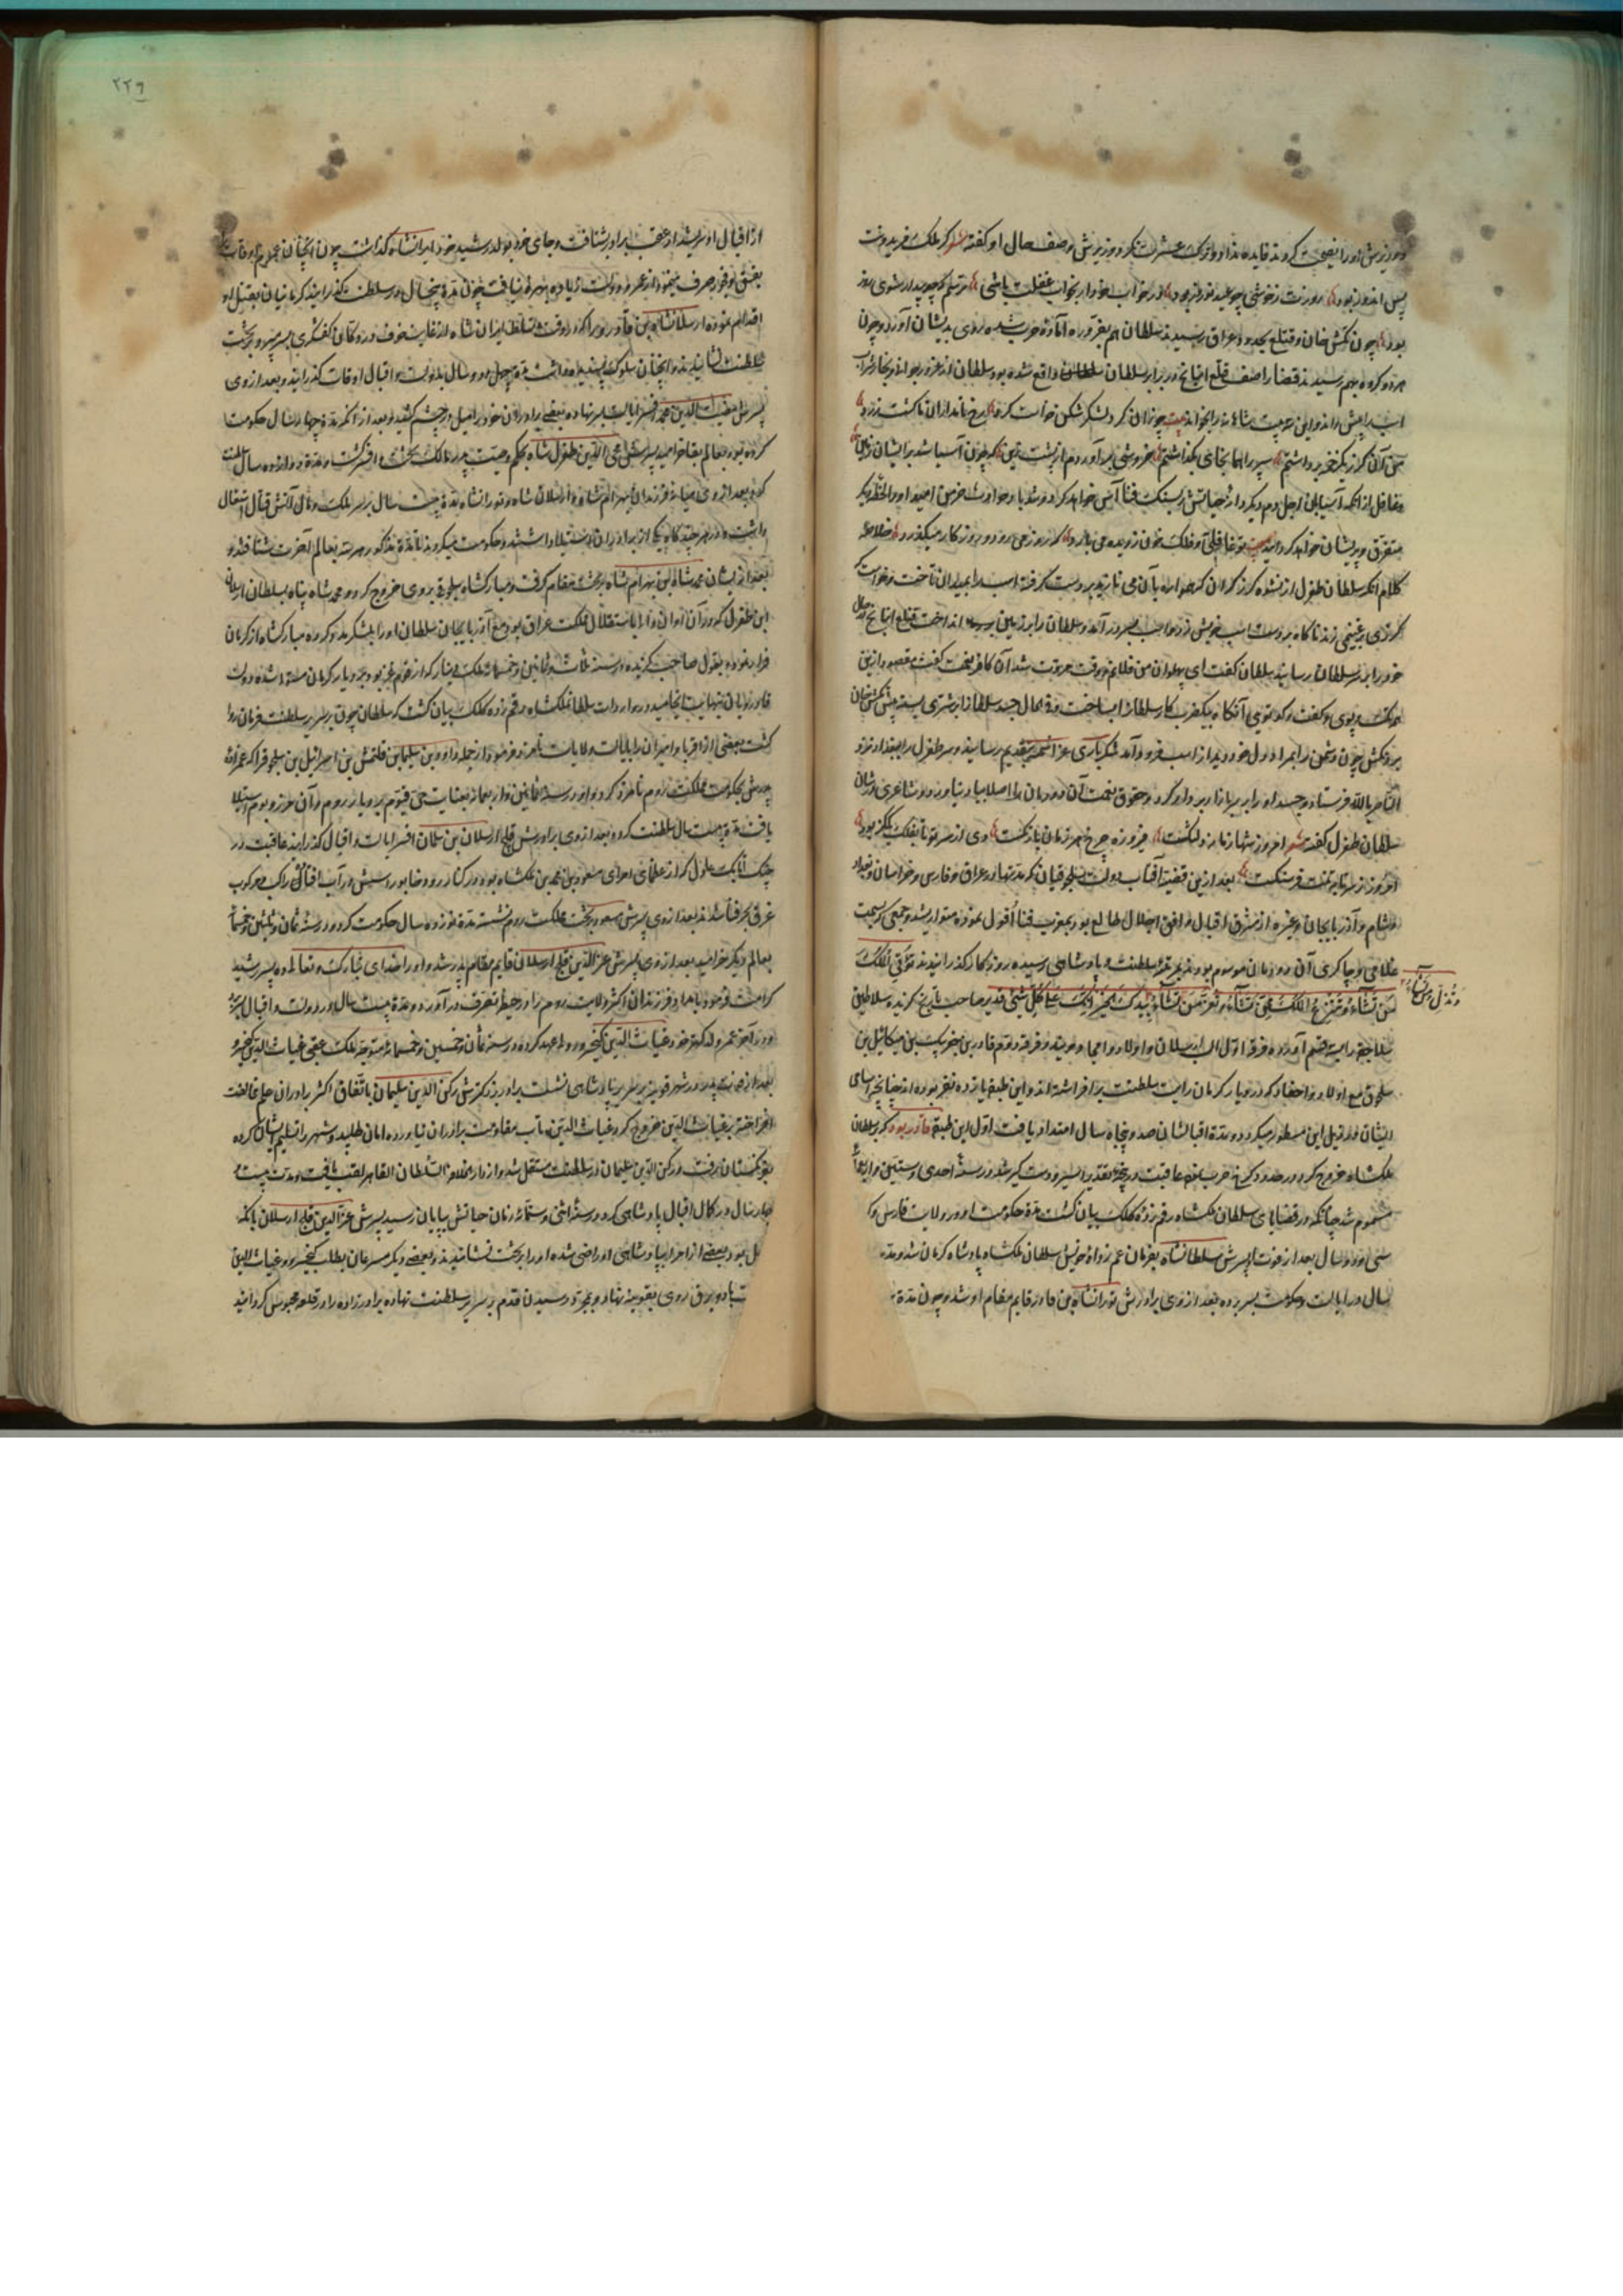 وزیرش او را نصیحت کردند فایده نداد و ترک عشرت نکرد و وزیرش وصف حال او گفته شعر کر ملک فریدونت
پس اندوز بود روزت ز خوشی چو عید نوروز بود در خواب خود ار بخواب غفلت باشی ترسم که چو بیدار شوی روز
بود چون تکش خان و قتلغ بحدود عراق رسیدند سلطان هم بفر آورده آماده حرب شده روی بدیشان آورد و چون
هر دو کروه بهم رسیدند قضا را صف قتلغ اینانج در برابر سلطان واقع شده بود و سلطان از غرور جوانی و بخار شراب
اسب پیش راند و این بیت شاهنامه را بخواند بیت چو زان لشکر کشن برخاست کرد رخ نامداران ما کشت زرد
من آن کرز یک زخم برداشتم سپه را هم آنجای بگذاشتم خروشی بر آوردم از پشت زین که چون آسیا شد بر ایشان زمین
و غافل از آنکه آسیابان اجل دم دیگر دانه حیاتش در سنک فنا آس خواهد کرد و تندباد حوادث خرمن امید او را لحظه دیگر
متفرق و پریشان خواهد کردانید تو غافلی و فلک خون ز دیده می بارد که روز می رود و روزکار میگذرد خلاصه
کلام آنکه سلطان طغرل از نشوه کرز کران که همواره بآن می نازید بر دست گرفته اسب را بمیدان تاخت و خواست
کرزی بر غنیمی زند ناگاه بر دست اسب خویش زد و اسب بسر در آمد و سلطان را بر زمین انداخت قتلغ اینانج در حال
خود را بر سر سلطان رسانید سلطان گفت ای پهلوان من فلانم وقت مروت شد آن کافر نعمت گفت مقصود ازین
همه تک و پوی و گفت و گو تویی آنگاه بیک ضربت کار سلطان بساخت و فی الحال جسد سلطان را بر شتری بسته پیش تکش خان
برد و تکش چون دشمن را بمراد دل خود دید از اسب فرود آمد شکر باری عز اسمه بتقدیم رسانید و سر طغرل را ببغداد نزد
الناصر بالله فرستاد و جسد او را بر سر بازار بر دار کرد و حقوق نعمت آن دودمان را اصلا بیاد نیاورد و شاعری در شان
سلطان طغرل گفته شعر امروز شها زمانه دلتنگست فیروزه چرخ هر زمان با رنگست دی از سر تو تا بفلک یک گز بود
امروز ز سر تا بتنت فرسنگست بعد ازین قضیه آفتاب دولت سلجوقیان که مدتها در عراق و فارس و خراسان و بغداد
و شام و آذربایجان و غیره از مشرق اقبال و افق اجلال طالع بود بمغرب فنا افول نموده متواری شد و جمعی که بسمت
غلامی و چاکری آن دودمان موسوم بودند بمرتبه سلطنت و پادشاهی رسیده روزگار گذرانیدند تؤتی الملک
من تشاء و تنزع الملک ممن تشاء و تعز من تشاء بیدک الخیر انک علی کل شی قدیر صاحب تاریخ گزیده سلاطین
و تذل من تشاء
سلاجقه را سه قسم آورده فرقه اول الب ارسلان و اولاد و فرقه دوم قاورد بن جغر بک بن میکائیل بن
سلجوق مع اولاد و احفاد که در دیار کرمان رایت سلطنت بر افراشته اند و این طبقه یازده نفر بوده اند چنانچه اسامی
ایشان در ذیل این مسطور میگردد و مدة اقبالشان صد و پنجاه سال امتداد یافت اول این طبقه قاورد بود که بر سلطان
ملکشاه خروج کرد و در حدود کرخ حرب نموده عاقبت در پنجه تقدیر اسیر و دستگیر شد در سنه احدی و ستین و اربعمائه
مسموم شد چنانکه در قضایای سلطان ملکشاه رقم زده کلک بیان گشت مدة حکومت او در ولایت فارس و
سی و دو سال بعد از فوت او پسرش سلطانشاه بفرمان عم زاده خویش سلطان ملکشاه پادشاه کرمان شد و مدة
سال در ایالت و حکومت بسر برده بعد از وی برادرش تورانشاه بن قاورد قایم مقام او شد و چون مدة
۲۲۹
از اقبال او نرسید از عقب برادر بشتافت و جای خود بولد رشید خود ایرانشاه گذاشت چون ایشان
بفسق و فجور صرف مینمود از عمر و دولت زیاده بهره نیافت چون مدة پنج سال در سلطنت بگذرانید کرمانیان بقتل او
اقدام نمودند ارسلانشاه بن قاورد را که در وقت تسلط ایران شاه از غایت خوف در دکان کفشگری بسر میبرد بر تخت
سلطنت نشانیدند و ایشان سلوک پسندیده داشت مدة چهل و دو سال بدولت و اقبال اوقات گذرانید و بعد از وی
پسرش مغیث الدین محمد افسر ایالت بر سر نهاده بعضی برادران خود را میل در چشم کشید و بعد از آنکه مدة چهارده سال حکومت
کرده بود بعالم بقا خرامید پسرش محی الدین طغرل شاه بحکم وصیت پدر مالک تخت و افسر گشت و مدة دوازده سال سلطنت
کرد بعد از وی میانه فرزندان بهرامشاه و ارسلان شاه و تورانشاه مدة بیست سال بر سر ملک و مال آتش قتال اشتعال
داشت و در هر چندگاه یکی از برادران استیلا داشتند و حکومت میکردند تا مدة مذکور هر سه بعالم آخرت شتافتند و
بعد ازیشان محمد شاه ابن بهرام شاه بر تخت مقام گرفت و مبارکشاه سلجوقی بر وی خروج کرد و محمد شاه پناه بسلطان ارسلان
ابن طغرل که در آن اوان والی باستقلال مملکت عراق بود و مع آذربایجان سلطان او را بلشکر مدد کرده مبارکشاه از کرمان
فرار نمود و بقول صاحب گزیده در سنه ثلاث و ثمانین و خمسمائه ملک دینار که از قوم غز بود بر دیار کرمان مستولی شده دولت
قاوردیان بنهایت انجامید و در واردات سلطان ملکشاه رقم زده کلک بیان گشت که سلطان چون بر سریر سلطنت فرمان روا
گشت بعضی از اقربا و امیران را بایالت ولایات نامزد فرمود از جمله داود بن سلیمان بن قتلمش بن اسرائیل بن سلجوق را که عمزاده
پدرش بحکومت مملکت روم نامزد کرد و او در سنه ثمانین و اربعمائه بعنایت حی قیوم بر دیار روم و آن مرز و بوم استیلا
یافت مدة بیست سال سلطنت کرده بعد از وی برادرش قلج ارسلان بن سلیمان افسر ایالت و اقبال گذرانید عاقبت در
جنک اتابک جاولی که از عظمای امرای مسعود بن محمد بن ملکشاه بود در کنار رود خابور اسبش در آب افتاد راکب و مرکوب
غرق بحر فنا شدند بعد از وی پسرش مسعود بر تخت مملکت روم نشسته مدة نوزده سال حکومت کرد و در سنه ثمان و ثلثین و خمسمائه
بعالم دیگر خرامید بعد از وی پسرش عز الدین قلج ارسلان قایم مقام پدر شد و او را خدای تبارک و تعالی ده پسر رشید
کرامت فرمود با هر دو فرزندان اکثر ولایت روم را در حیطه تصرف در آورد و مدة بیست سال در دولت و اقبال
و در آخر عمر ولد کهتر خود غیاث الدین کیخسرو را ولیعهد کرده در سنه ثمان و خمسین و خمسمائه متوجه ملک عقبی غیاث الدین کیخسرو
بعد از فوت پدر در شهر قونیه بر سریر پادشاهی نشست برادر بزرگترش رکن الدین سلیمان باتفاق اکثر برادران علم مخالفت
افراخته بر غیاث الدین خروج کرد و غیاث الدین تاب مقاومت برادران نیاورده امان طلبید و شهر را تسلیم ایشان کرده
برفت و رکن الدین سلیمان در سلطنت مستقل شد و از دار الخلافه السلطان القاهر لقب یافت و مدت بیست
چهار سال در کمال اقبال پادشاهی کرد و در سنه اثنی و ستمائه زمان حیاتش بپایان رسید پسرش عز الدین قلج ارسلان با آنکه
بود بعضی از امرا بپادشاهی او راضی شده او را بر تخت نشانیدند و بعضی دیگر مسرعان بطلب کیخسرو و غیاث الدین
باد و برق روی بقونیه نهاد و بمجرد رسیدن قدم بر سریر سلطنت نهاده برادر زاده را در قلعه محبوس گردانید